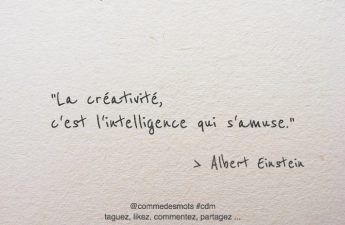 "La créativité,
c'est l'intelligence qui s'amuse."
> Albert Einstein
@commedesmots #cdm
taguez, likez, commentez, partagez ...